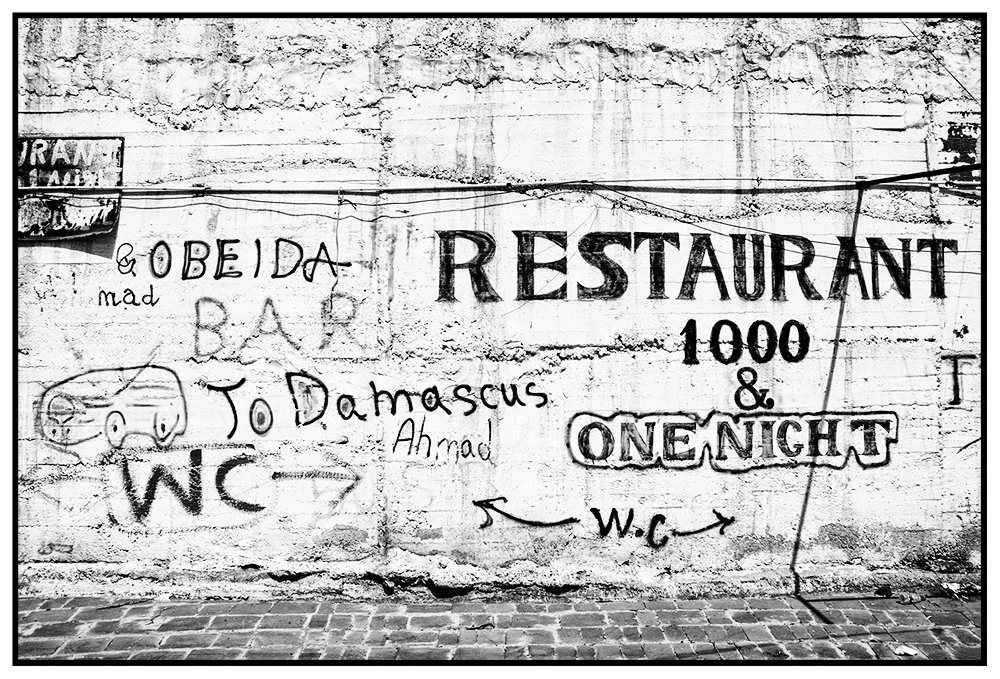 & OBEIDA
mad
BAR
To Damascus
Ahmad
WC
RESTAURANT
1000
&
ONE NIGHT
W.C